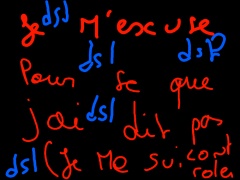 Je dsl M'excuse
dsl dsl?
Pour se que
jai dsl dit pas
dsl (je me suis controler